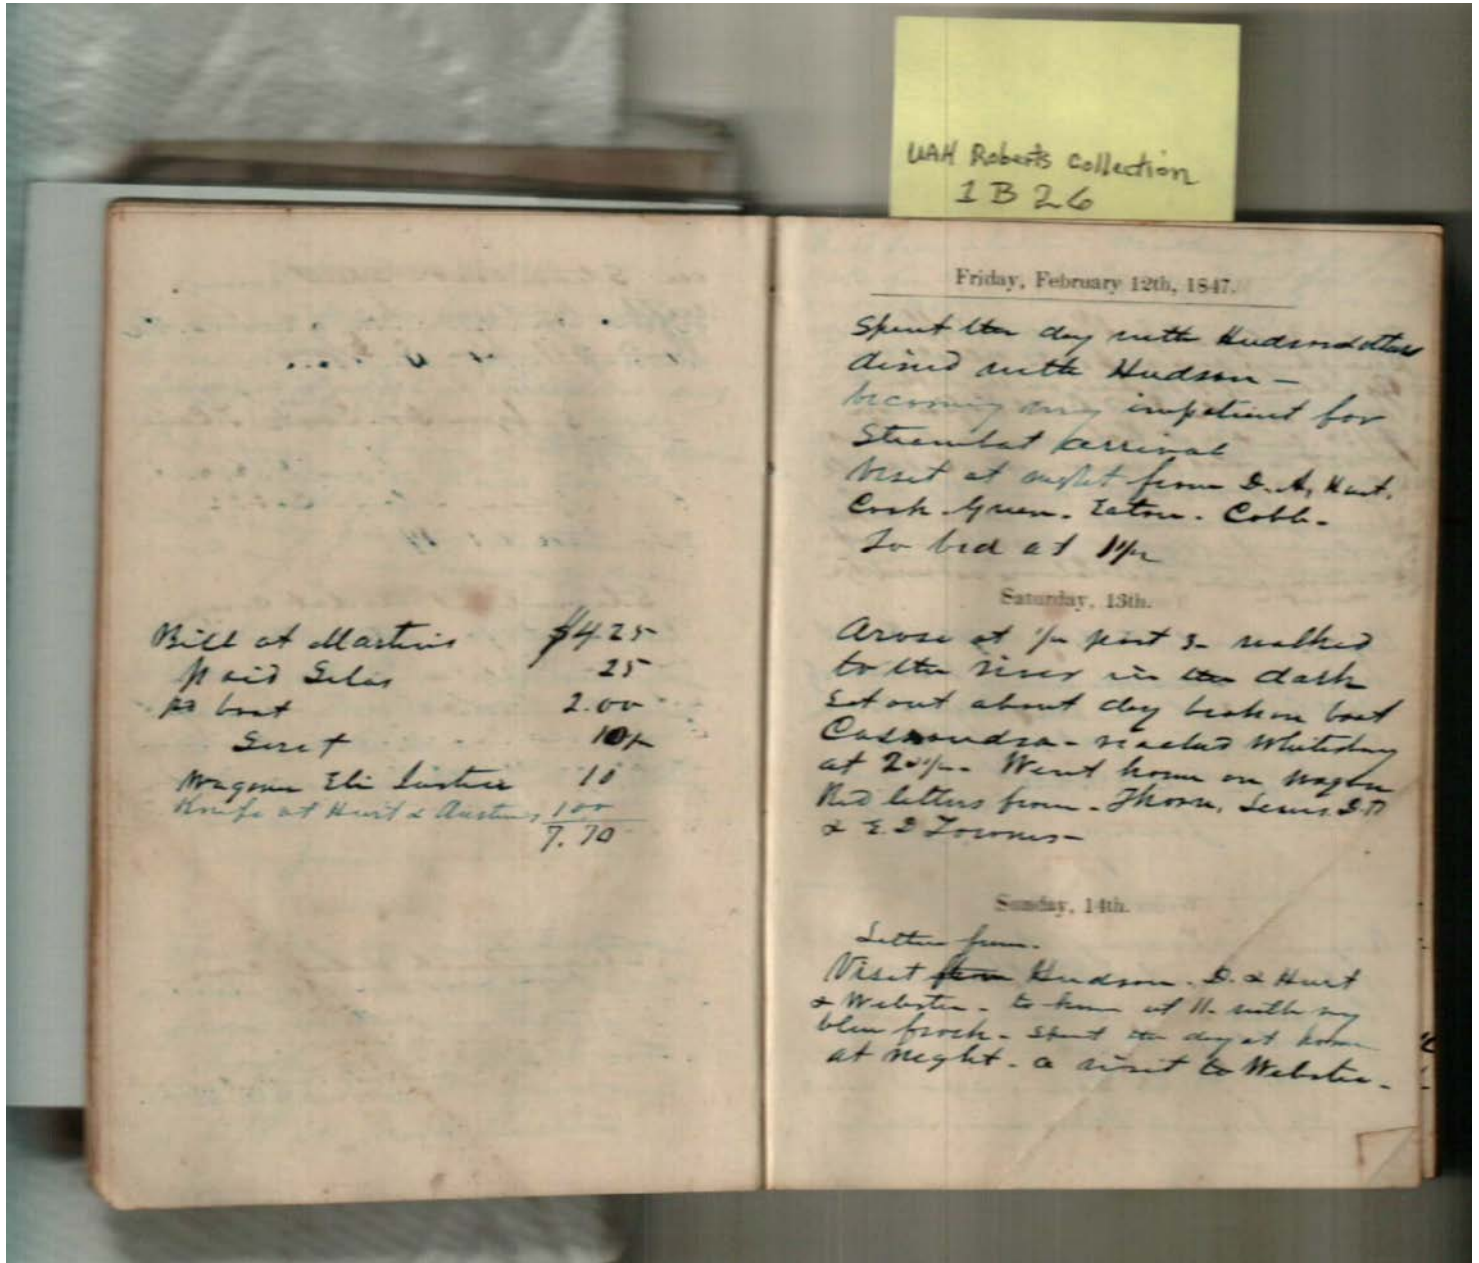 UAH Roberts Collection
1 B 26
Bill at Martins $4.25
paid Silas 25
pd boat 2.00
10
Wagoner Eli 10
Knife at Hurt & Austins 1.00
7.70
Friday, February 12th, 1847.
Spent the day with Hudson & others
dined with Hudson -
becoming very impatient for
Steamboat arrival
Visit at night from D. A. Hurt.
Cook. Green. Eaton. Cobb.
To bed at
Saturday, 13th.
Arose at 1/2 past 3 - walked
to the river in the dark
Set out about day break on boat
Cassandra - reached Whitesburg
at 2 Went home on wagon
Recd letters from - Thorn, Lewis.
& E. D Townes -
Sunday, 14th.
Letter from.
Visit from Hudson. D. & Hurt
& Webster - to home at 11 - with my
blue frock - spent the day at home
at night - a visit to Webster -